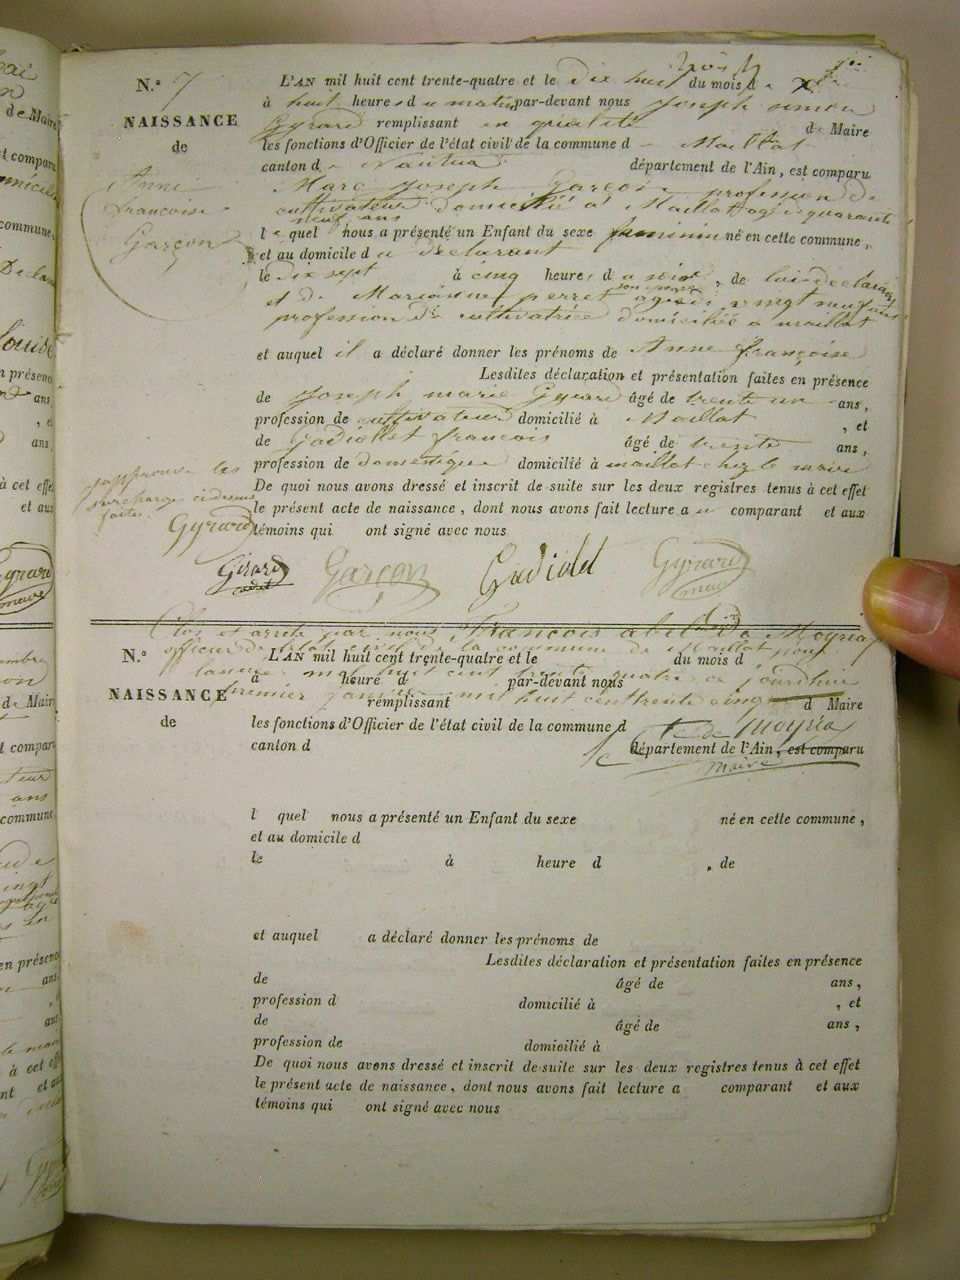 N.º 7
NAISSANCE
de
Anne
françoise
Garçon
L'AN mil huit cent trente-quatre et le dix huit du mois d
à huit heures du matin par-devant nous Joseph simon
Gyrard remplissant en qualité de Maire
les fonctions d'Officier de l'état civil de la commune d Maillat
canton de Nantua département de l'Ain, est comparu
Marc Joseph Garçon profession de
cultivateur domicilié à Maillat agé de quarante
neuf ans
lequel nous a présenté un Enfant du sexe feminin né en cette commune,
et au domicile du déclarant
le dix sept à cinq heures du soir, de lui déclarant
et de Marianne perret son epouse agée de vingt neuf ans
profession de cultivatrice domiciliée a maillat
et auquel il a déclaré donner les prénoms de Anne françoise
Lesdites déclaration et présentation faites en présence
de Joseph marie Gyrard âgé de trente un ans,
profession de cultivateur domicilié à Maillat, et
de Gadiollet francois âgé de trente ans,
profession de domestique domicilié à maillat chez le maire
De quoi nous avons dressé et inscrit de suite sur les deux registres tenus à cet effet
le présent acte de naissance, dont nous avons fait lecture au comparant et aux
témoins qui ont signé avec nous
japprouve les
surcharge cidessus
faites.
Gyrard
Girard cadet Garçon Gadiolet Gyrard maire
Clos et arreté par nous François abel de Moyria
officier de l'état civil de la commune de Maillat pour
lannee mil huit cent trente quatre ce jourdhui
premier janvier mil huit cent trente cinq
F. de moyria
Le maire
N.º
NAISSANCE
de
L'AN mil huit cent trente-quatre et le du mois d
à heure d par-devant nous
remplissant d Maire
les fonctions d'Officier de l'état civil de la commune d
canton d département de l'Ain, est comparu
l quel nous a présenté un Enfant du sexe né en cette commune,
et au domicile d
le à heure d , de
et auquel a déclaré donner les prénoms de
Lesdites déclaration et présentation faites en présence
de âgé de ans,
profession d domicilié à , et
de âgé de ans,
profession de domicilié à
De quoi nous avons dressé et inscrit de suite sur les deux registres tenus à cet effet
le présent acte de naissance, dont nous avons fait lecture a comparant et aux
témoins qui ont signé avec nous